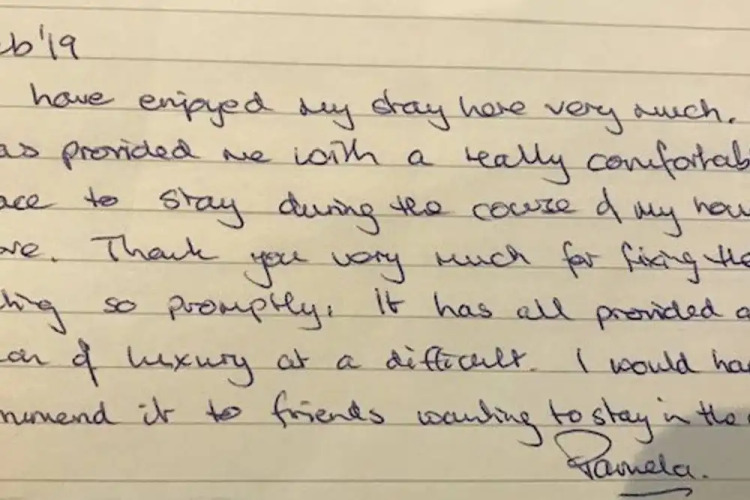 eb '19
have enjoyed my stay here very much.
as provided me with a really comfortab
ace to stay during the course of my hou
ove. Thank you very much for fixing the
ting so promptly. It has all provided a
ion of luxury at a difficult. I would ha
mmend it to friends wanting to stay in the
Pamela.